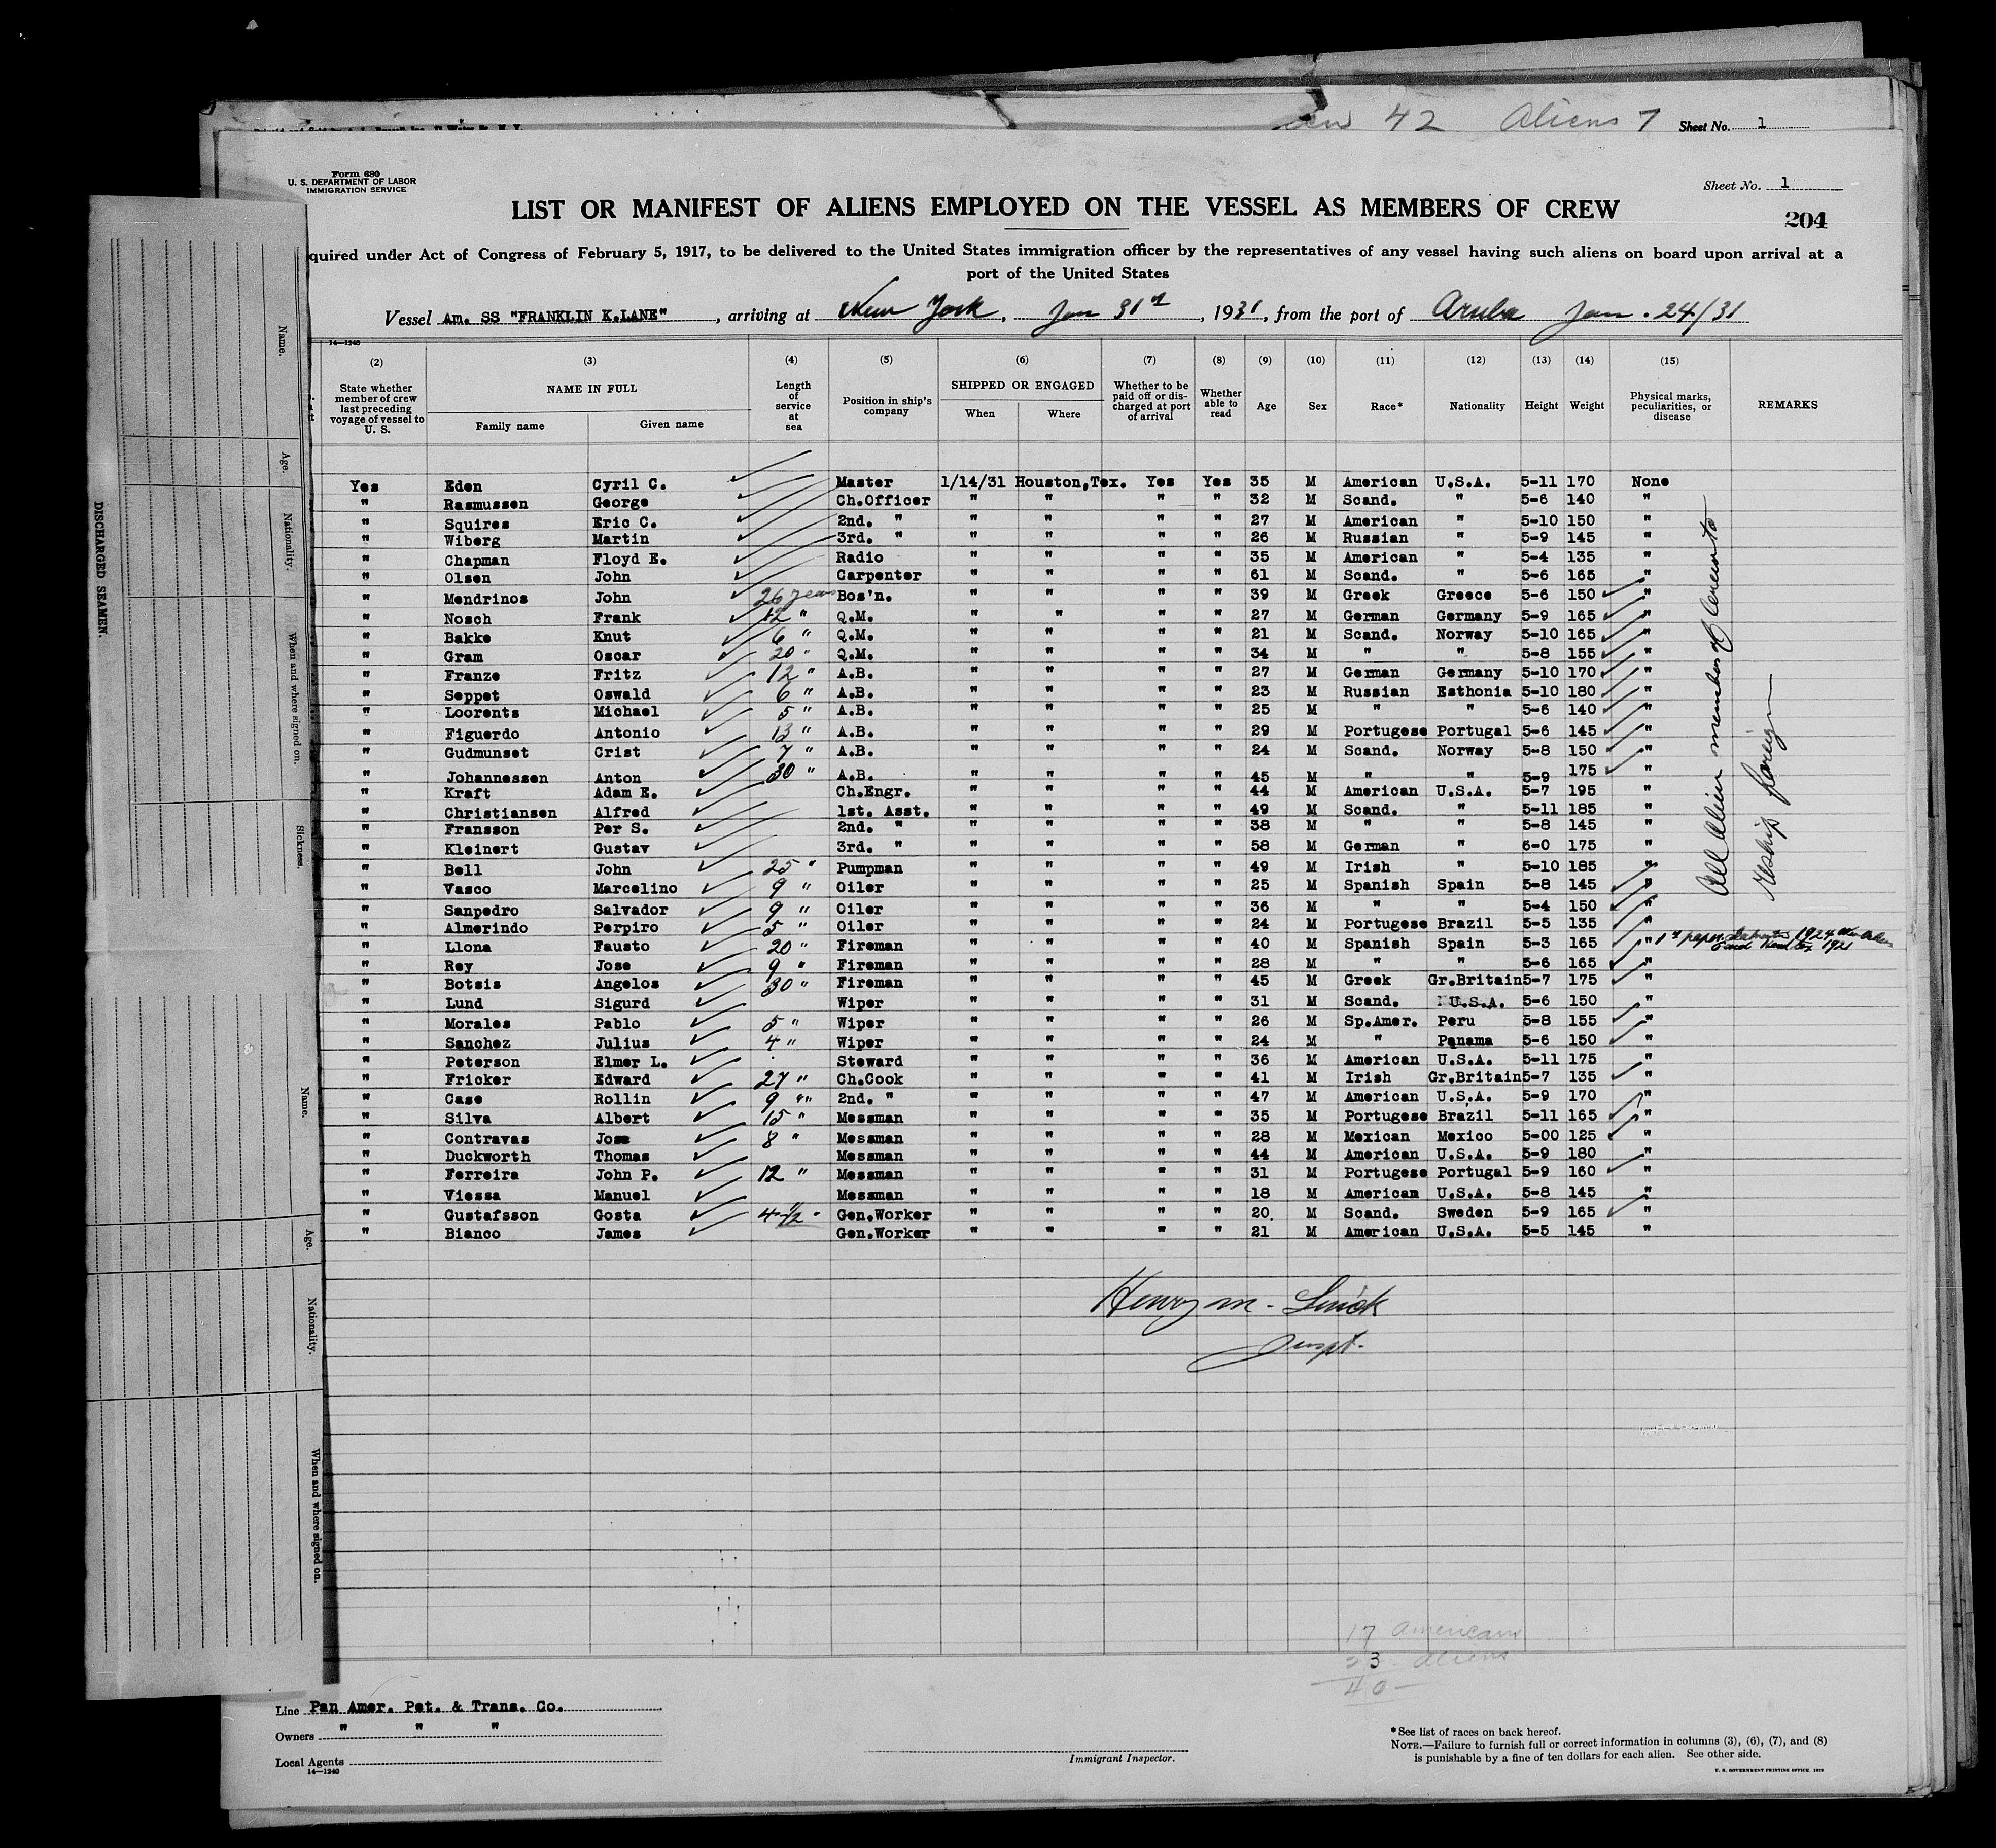 Crew 42 Aliens 7 Sheet No. 1
Form 680
U. S. DEPARTMENT OF LABOR
IMMIGRATION SERVICE
Sheet No. 1
LIST OR MANIFEST OF ALIENS EMPLOYED ON THE VESSEL AS MEMBERS OF CREW
204
quired under Act of Congress of February 5, 1917, to be delivered to the United States immigration officer by the representatives of any vessel having such aliens on board upon arrival at a
port of the United States
Vessel Am. SS "FRANKLIN K.LANE", arriving at New York, Jan 31st, 1931, from the port of Aruba Jan. 24/31
14—1240
(2) (3) (4) (5) (6) (7) (8) (9) (10) (11) (12) (13) (14) (15)
State whether member of crew last preceding voyage of vessel to U. S. | NAME IN FULL | Family name | Given name | Length of service at sea | Position in ship's company | SHIPPED OR ENGAGED | When | Where | Whether to be paid off or discharged at port of arrival | Whether able to read | Age | Sex | Race* | Nationality | Height | Weight | Physical marks, peculiarities, or disease | REMARKS
Yes Eden Cyril C. Master 1/14/31 Houston,Tex. Yes Yes 35 M American U.S.A. 5-11 170 None
" Rasmussen George Ch.Officer " " " " 32 M Scand. " 5-6 140 "
" Squires Eric C. 2nd. " " " " " 27 M American " 5-10 150 "
" Wiberg Martin 3rd. " " " " " 26 M Russian " 5-9 145 "
" Chapman Floyd E. Radio " " " " 35 M American " 5-4 135 "
" Olsen John Carpenter " " " " 61 M Scand. " 5-6 165 "
" Mendrinos John 26 years Bos'n. " " " " 39 M Greek Greece 5-6 150 "
" Nosch Frank 12 " Q.M. " " " " 27 M German Germany 5-9 165 "
" Bakke Knut 6 " Q.M. " " " " 21 M Scand. Norway 5-10 165 "
" Gram Oscar 20 " Q.M. " " " " 34 M " " 5-8 155 "
" Franze Fritz 12 " A.B. " " " " 27 M German Germany 5-10 170 "
" Seppet Oswald 6 " A.B. " " " " 23 M Russian Esthonia 5-10 180 "
" Loorents Michael 5 " A.B. " " " " 25 M " " 5-6 140 "
" Figuerdo Antonio 13 " A.B. " " " " 29 M Portugese Portugal 5-6 145 "
" Gudmunset Crist 7 " A.B. " " " " 24 M Scand. Norway 5-8 150 "
" Johannessen Anton 30 " A.B. " " " " 45 M " " 5-9 175 "
" Kraft Adam E. Ch.Engr. " " " " 44 M American U.S.A. 5-7 195 "
" Christiansen Alfred 1st. Asst. " " " " 49 M Scand. " 5-11 185 "
" Fransson Per S. 2nd. " " " " " 38 M " " 5-8 145 "
" Kleinert Gustav 3rd. " " " " " 58 M German " 6-0 175 "
" Bell John 25 " Pumpman " " " " 49 M Irish " 5-10 185 "
" Vasco Marcelino 9 " Oiler " " " " 25 M Spanish Spain 5-8 145 "
" Sanpedro Salvador 9 " Oiler " " " " 36 M " " 5-4 150 "
" Almerindo Perpiro 5 " Oiler " " " " 24 M Portugese Brazil 5-5 135 "
" Llona Fausto 20 " Fireman " " " " 40 M Spanish Spain 5-3 165 " 1st paper 1924 1921
" Rey Jose 9 " Fireman " " " " 28 M " " 5-6 165 "
" Botsis Angelos 30 " Fireman " " " " 45 M Greek Gr.Britain 5-7 175 "
" Lund Sigurd Wiper " " " " 31 M Scand. U.S.A. 5-6 150 "
" Morales Pablo 5 " Wiper " " " " 26 M Sp.Amer. Peru 5-8 155 "
" Sanchez Julius 4 " Wiper " " " " 24 M " Panama 5-6 150 "
" Peterson Elmer L. Steward " " " " 36 M American U.S.A. 5-11 175 "
" Fricker Edward 27 " Ch.Cook " " " " 41 M Irish Gr.Britain 5-7 135 "
" Case Rollin 9 " 2nd. " " " " " 47 M American U.S.A. 5-9 170 "
" Silva Albert 15 " Messman " " " " 35 M Portugese Brazil 5-11 165 "
" Contravas Jose 8 " Messman " " " " 28 M Mexican Mexico 5-00 125 "
" Duckworth Thomas Messman " " " " 44 M American U.S.A. 5-9 180 "
" Ferreira John P. 12 " Messman " " " " 31 M Portugese Portugal 5-9 160 "
" Viessa Manuel Messman " " " " 18 M American U.S.A. 5-8 145 "
" Gustafsson Gosta 4 1/2 " Gen.Worker " " " " 20 M Scand. Sweden 5-9 165 "
" Bianco James Gen.Worker " " " " 21 M American U.S.A. 5-5 145 "
All Alien members of Crew to
reship foreign
Henry M. Smick
Inspt.
17 Americans
23 aliens
40
Line Pan Amer. Pet. & Trans. Co.
Owners " " "
Local Agents
14—1240
Immigrant Inspector.
*See list of races on back hereof.
NOTE.—Failure to furnish full or correct information in columns (3), (6), (7), and (8)
is punishable by a fine of ten dollars for each alien. See other side.
U. S. GOVERNMENT PRINTING OFFICE. 1929
DISCHARGED SEAMEN.
Name.
Age.
Nationality.
When and where signed on.
Sickness.
Name.
Age.
Nationality.
When and where signed on.